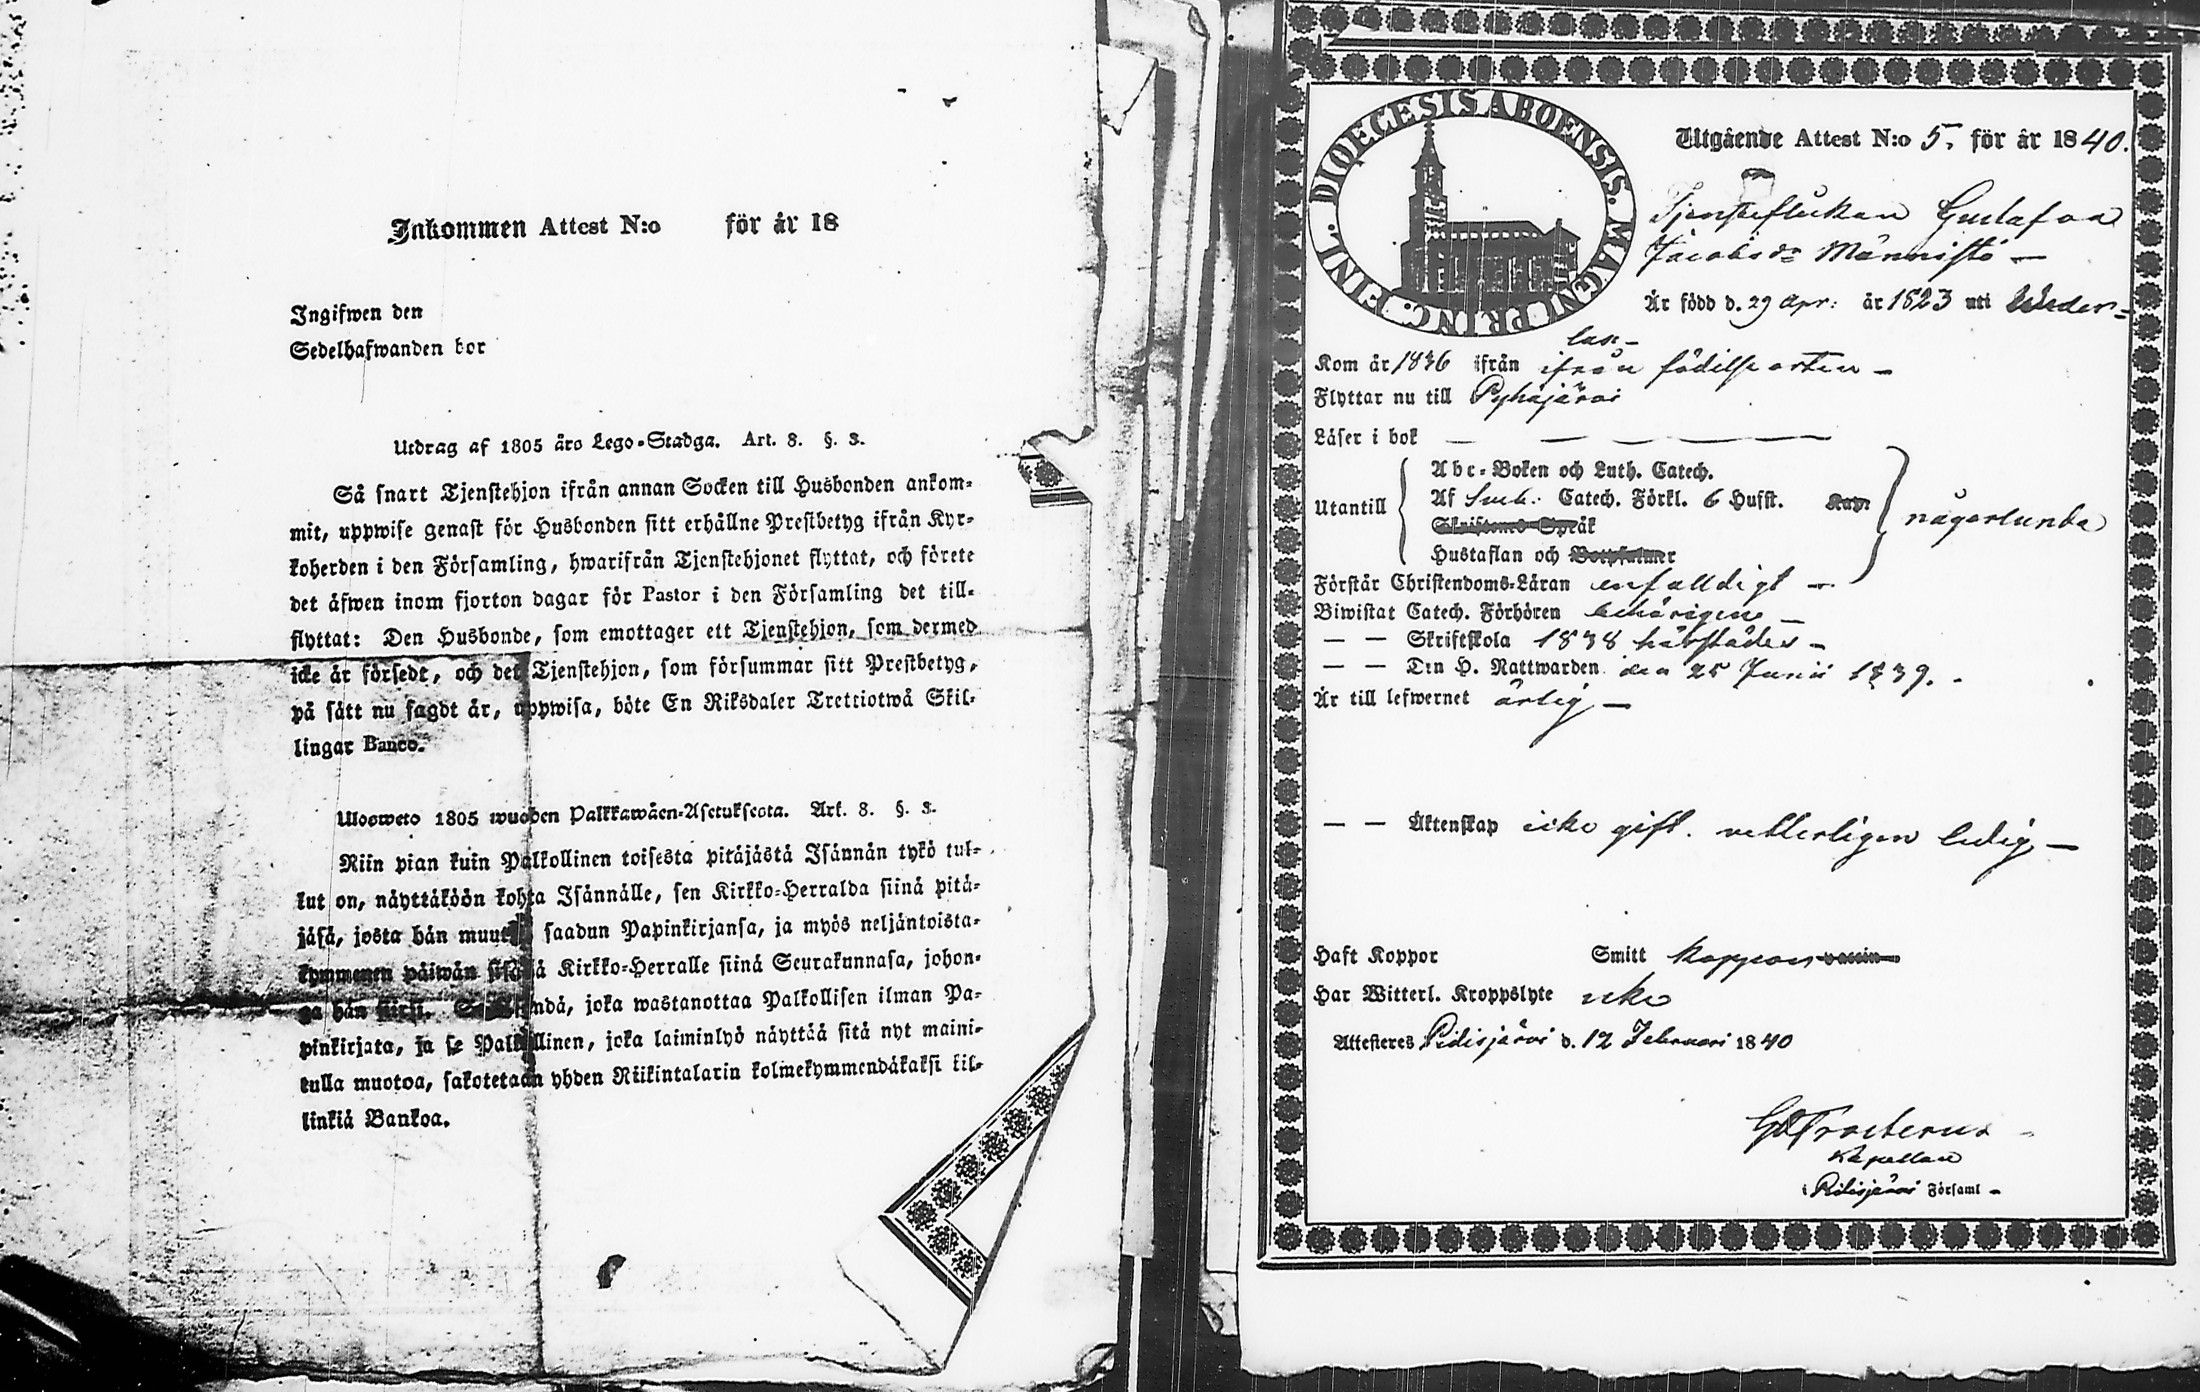 Inkommen Attest N:o för år 18
Ingifwen den
Sedelhafwanden bor
Utdrag af 1805 års Lego-Stadga. Art. 8. §. 3.
Så snart Tjenstehjon ifrån annan Socken till Husbonden ankom-
mit, uppwise genast för Husbonden sitt erhållne Prestbetyg ifrån Kyr-
koherden i den Församling, hwarifrån Tjenstehjonet flyttat, och förete
det äfwen inom fjorton dagar för Pastor i den Församling det till-
flyttat: Den Husbonde, som emottager ett Tjenstehjon, som dermed
icke är försedt, och det Tjenstehjon, som försummar sitt Prestbetyg,
på sätt nu sagdt är, uppwisa, böte En Riksdaler Trettiotwå Skil-
lingar Banco.
Ulosweto 1805 wuoden Palkkawäen-Asetuksesta. Art. 8. §. 3.
Niin pian kuin Palkollinen toisesta pitäjästä Isännän tykö tul-
lut on, näyttäköön kohta Isännälle, sen Kirkko-Herralda siinä pitä-
jäsä, josta hän muutti saadun Papinkirjansa, ja myös neljäntoista-
kymmenen päiwän sisällä Kirkko-Herralle siinä Seurakunnasa, johon-
ga hän siirsi. Se Isändä, joka wastanottaa Palkollisen ilman Pa-
pinkirjata, ja se Palkollinen, joka laiminlyö näyttää sitä nyt maini-
tulla muotoa, sakotetaan yhden Riikintalarin kolmekymmendäkaksi kil-
linkiä Bankoa.
DIOECESIS ABOENSIS. MAGNI PRINC. FINL.
Utgående Attest N:o 5. för år 1840.
Tjensteflickan Gustafva
Jacobsdr Männistö —
Är född d. 29 Apr: år 1823 uti Weder-
lax-
Kom år 1836 ifrån ifrån födelseorten —
Flyttar nu till Pyhäjärvi
Läser i bok — — — — —
Abc-Boken och Luth. Catech.
Utantill Af Catech. Förkl. 6 Hufst. Kap. någorlunda
Skriftens Språk
Hustaflan och Botpsalmer
Förstår Christendoms-Läran enfaldigt —
Biwistat Catech. Förhören behörigen —
— — Skriftskola 1838 härstädes —
— — Den H. Nattwarden den 25 Junii 1839.
Är till lefwernet ärlig —
— — Äktenskap icke gift. vetterligen ledig —
Haft Koppor Smitt koppor vaccin
Har Witterl. Kroppslyte icke
Attesteres Pidisjärvi d. 12 Februari 1840
Kapellan
i Pidisjärvi Församl —